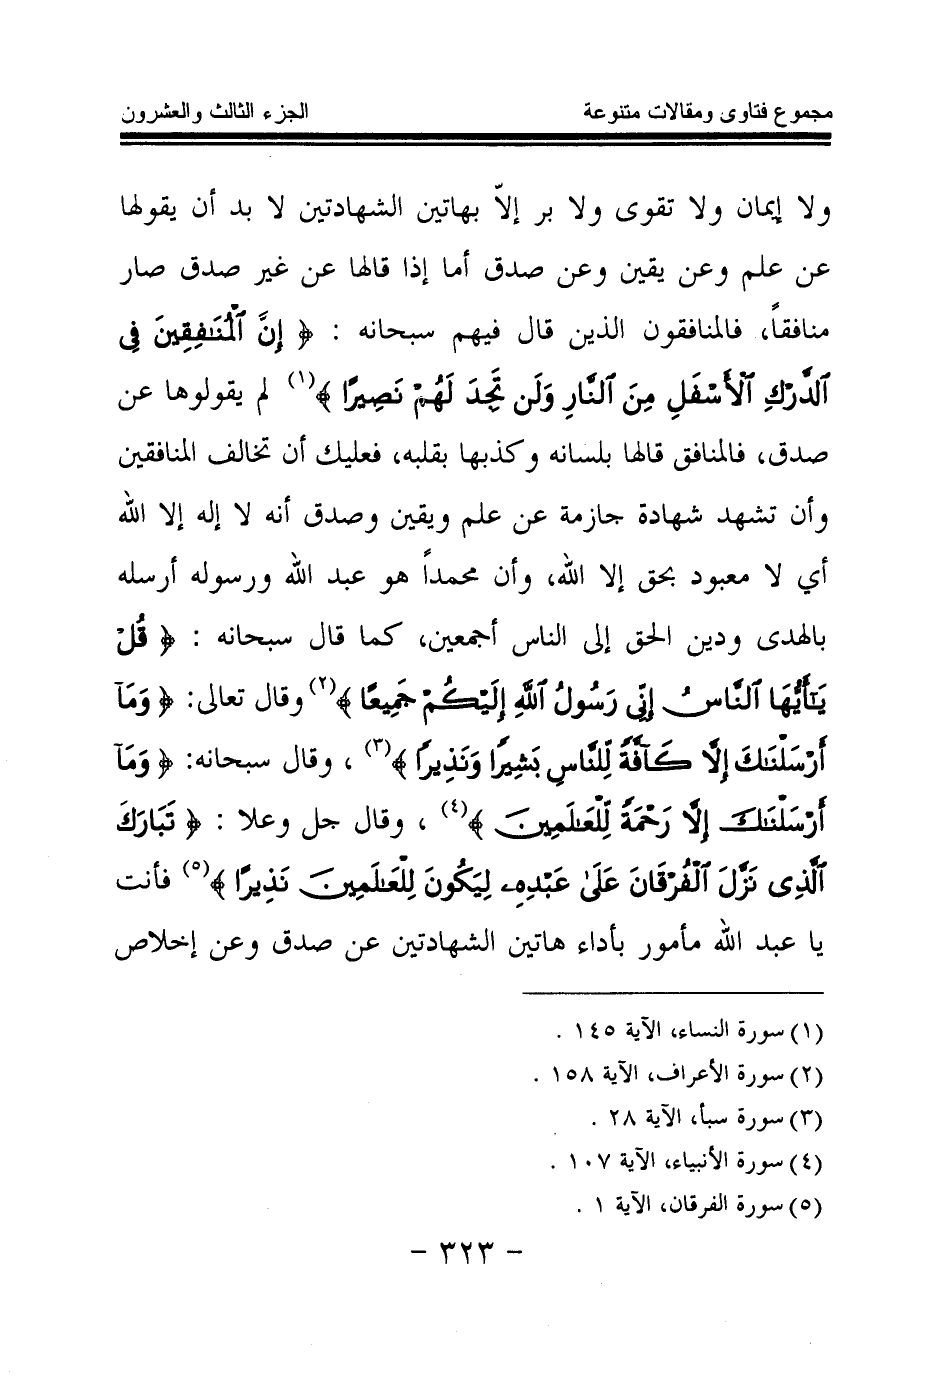 مجموع فتاوى ومقالات متنوعة الجزء الثالث والعشرون
ولا إيمان ولا تقوى ولا بر إلاّ بهاتين الشهادتين لا بد أن يقولها
عن علم وعن يقين وعن صدق أما إذا قالها عن غير صدق صار
منافقاً، فالمنافقون الذين قال فيهم سبحانه : ﴿ إِنَّ ٱلْمُنَـٰفِقِينَ فِى
ٱلدَّرْكِ ٱلْأَسْفَلِ مِنَ ٱلنَّارِ وَلَن تَجِدَ لَهُمْ نَصِيرًا ﴾(١) لم يقولوها عن
صدق، فالمنافق قالها بلسانه وكذبها بقلبه، فعليك أن تخالف المنافقين
وأن تشهد شهادة جازمة عن علم ويقين وصدق أنه لا إله إلا الله
أي لا معبود بحق إلا الله، وأن محمداً هو عبد الله ورسوله أرسله
بالهدى ودين الحق إلى الناس أجمعين، كما قال سبحانه : ﴿ قُلْ
يَـٰٓأَيُّهَا ٱلنَّاسُ إِنِّى رَسُولُ ٱللَّهِ إِلَيْكُمْ جَمِيعًا ﴾(٢) وقال تعالى: ﴿ وَمَآ
أَرْسَلْنَـٰكَ إِلَّا كَآفَّةً لِّلنَّاسِ بَشِيرًا وَنَذِيرًا ﴾(٣) ، وقال سبحانه: ﴿ وَمَآ
أَرْسَلْنَـٰكَ إِلَّا رَحْمَةً لِّلْعَـٰلَمِينَ ﴾(٤) ، وقال جل وعلا : ﴿ تَبَارَكَ
ٱلَّذِى نَزَّلَ ٱلْفُرْقَانَ عَلَىٰ عَبْدِهِۦ لِيَكُونَ لِلْعَـٰلَمِينَ نَذِيرًا ﴾(٥) فأنت
يا عبد الله مأمور بأداء هاتين الشهادتين عن صدق وعن إخلاص
(١) سورة النساء، الآية ١٤٥ .
(٢) سورة الأعراف، الآية ١٥٨ .
(٣) سورة سبأ، الآية ٢٨ .
(٤) سورة الأنبياء، الآية ١٠٧ .
(٥) سورة الفرقان، الآية ١ .
- ٣٢٣ -